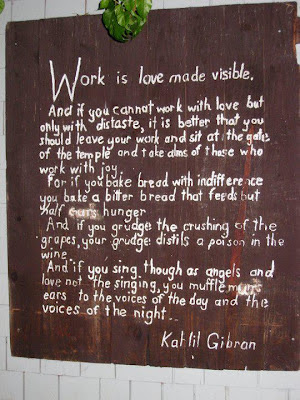 Work is love made visible.
And if you cannot work with love but
only with distaste, it is better that you
should leave your work and sit at the gate
of the temple and take alms of those who
work with joy.
For if you bake bread with indifference
you bake a bitter bread that feeds but
half hunger
And if you grudge the crushing of the
grapes, your grudge distils a poison in the
wine
And if you sing though as angels and
love not the singing, you muffle
ears to the voices of the day and the
voices of the night
Kahlil Gibran